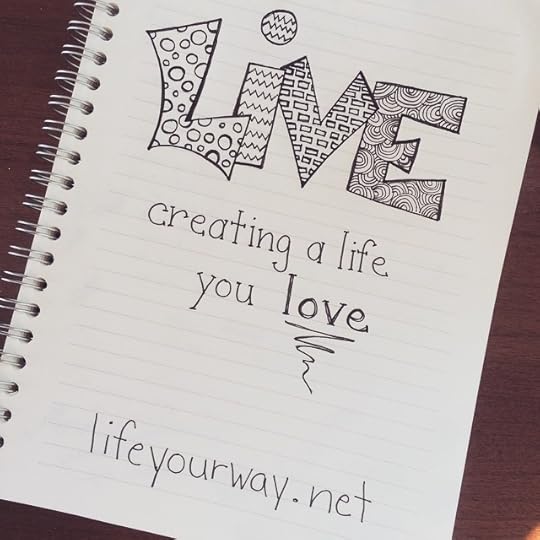 LiVE
creating a life
you love
lifeyourway.net